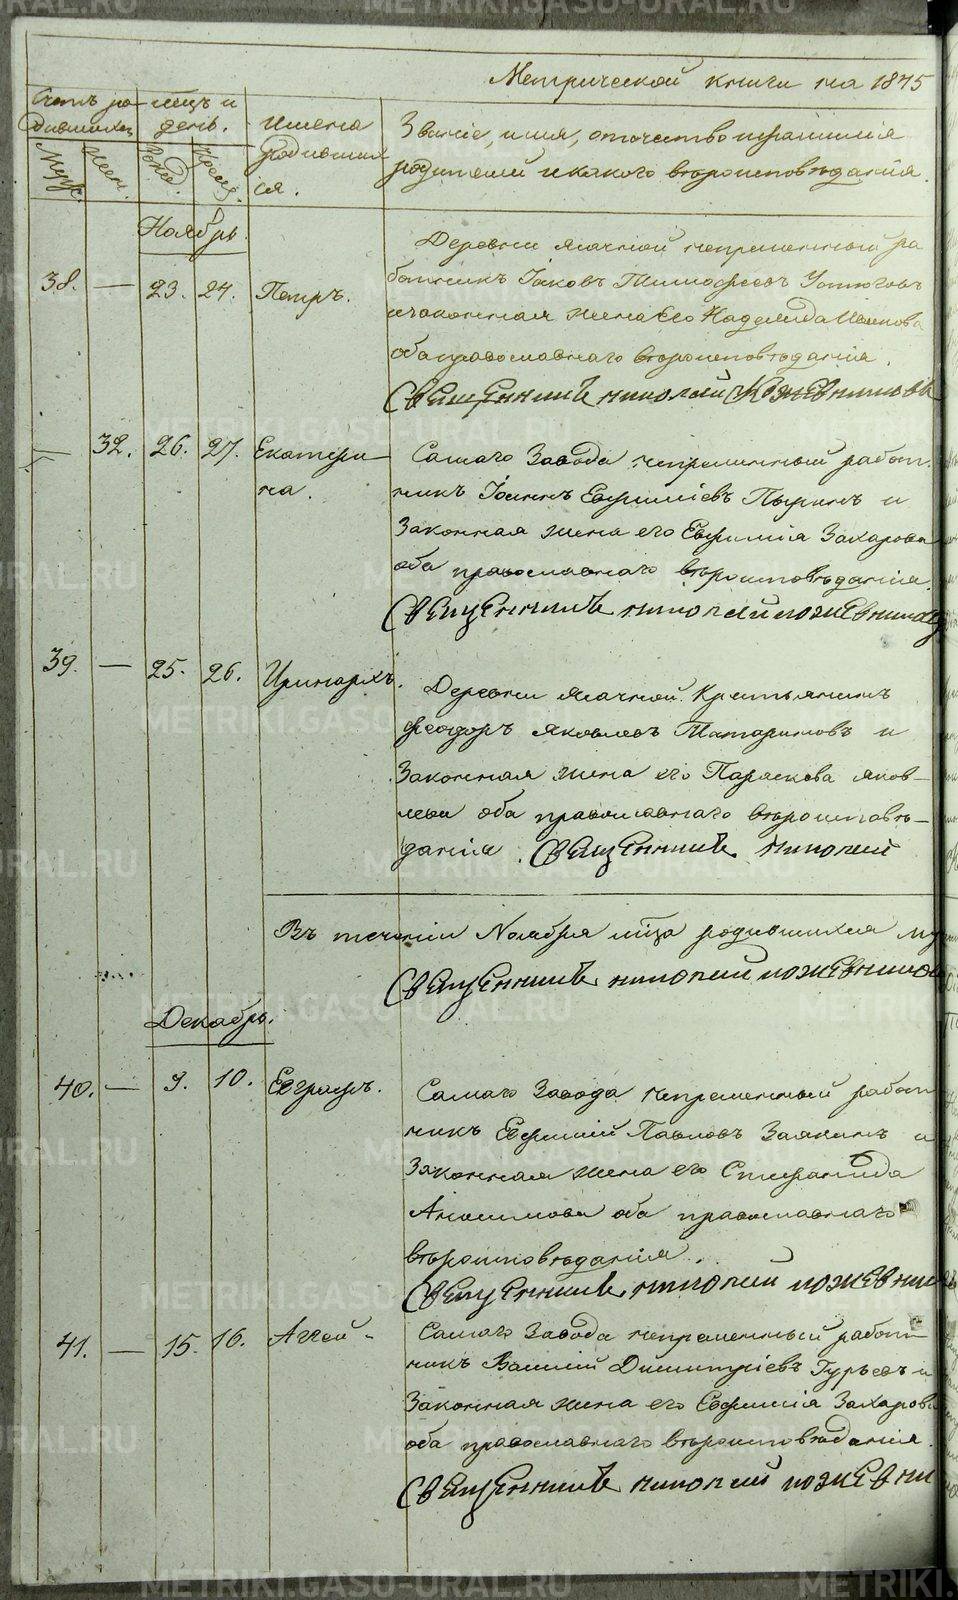 Метрической книги на 1875
Счетъ ро-
дившихся
Муж.
Жен.
Мѣсяцъ и
день.
Рожд.
Крещ.
Имена
родивших
ся.
Званіе, имя, отчество и фамилія
родителей и какого вѣроисповѣданія.
Ноябрь.
38. — 23. 24. Петръ.
Деревни непременный ра
ботникъ Іаковъ Тимофеевъ
и законная жена его Надежда Иванова
оба православнаго вѣроисповѣданія.
Священникъ Николай Кожевников
— 32. 26. 27. Екатери-
на.
Самаго Завода непременный работ
никъ Іоаннъ Евфиміевъ Пыринъ и
Законная жена его Евфимія Захарова
оба православнаго вѣроисповѣданія
Священникъ Николай Кожевников
39. — 25. 26. Иринархъ.
Деревни Крестьянинъ
Феодоръ Яковлевъ Татариновъ и
Законная жена его Параскова Яков-
лева оба православнаго вѣроисповѣ-
данія. Священникъ Николай
Въ теченіи Ноября мѣсца родившихся му
Священникъ Николай Кожевников
Декабрь.
40. — 9. 10. Евграфъ.
Самаго Завода непременный работ
никъ Евфимій Павловъ Заякинъ и
Законная жена его Стефанида
Анисимова оба православнаго
вѣроисповѣданія.
Священникъ Николай Кожевник
41. — 15. 16. Аггей.
Самаго Завода непременный работ
никъ Василій Димитріевъ Гурьевъ и
Законная жена его Евфимія Захарова
оба православнаго вѣроисповѣданія.
Священникъ Николай Кожевни
METRIKI.GASO-URAL.RU